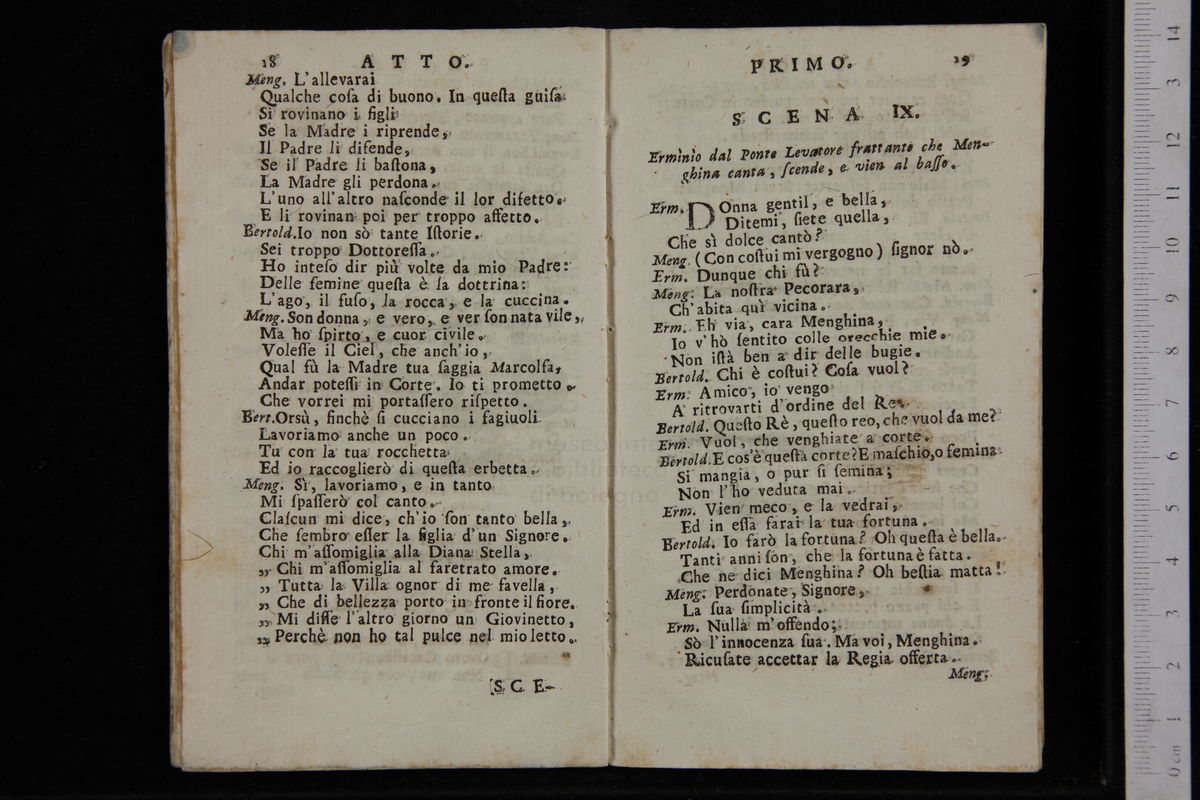 18 ATTO.
Meng. L'allevarai
Qualche coſa di buono. In queſta guiſa
Si rovinano i figli
Se la Madre i riprende,
Il Padre li difende,
Se il Padre li baſtona,
La Madre gli perdona.
L'uno all'altro naſconde il lor difetto.
E li rovinan poi per troppo affetto.
Bertold. Io non sò tante Iſtorie.
Sei troppo Dottoreſſa.
Ho inteſo dir più volte da mio Padre:
Delle femine queſta è la dottrina:
L'ago, il fuſo, la rocca, e la cuccina.
Meng. Son donna, e vero, e ver ſon nata vile,
Ma ho ſpirto, e cuor civile.
Voleſſe il Ciel, che anch'io,
Qual fù la Madre tua ſaggia Marcolfa,
Andar poteſſi in Corte. Io ti prometto.
Che vorrei mi portaſſero riſpetto.
Bert. Orsù, finchè ſi cucciano i fagiuoli.
Lavoriamo anche un poco.
Tu con la tua rocchetta
Ed io raccoglierò di queſta erbetta.
Meng. Sì, lavoriamo, e in tanto
Mi ſpaſſerò col canto.
Claſcun mi dice, ch'io ſon tanto bella,
Che ſembro eſſer la figlia d'un Signore.
Chi m'aſſomiglia alla Diana Stella,
„ Chi m'aſſomiglia al faretrato amore.
„ Tutta la Villa ognor di me favella,
„ Che di bellezza porto in fronte il fiore.
„ Mi diſſe l'altro giorno un Giovinetto,
„ Perchè non ho tal pulce nel mio letto.
SCE-
PRIMO. 19
SCENA IX.
Erminio dal Ponte Levatore frattanto che Men-
ghina canta, ſcende, e vien al baſſo.
Erm. DOnna gentil, e bella,
Ditemi, ſiete quella,
Che sì dolce cantò?
Meng. (Con coſtui mi vergogno) ſignor nò.
Erm. Dunque chi fù?
Meng. La noſtra Pecorara,
Ch'abita quì vicina.
Erm. Eh via, cara Menghina,
Io v'hò ſentito colle orecchie mie.
Non iſtà ben a dir delle bugie.
Bertold. Chi è coſtui? Coſa vuol?
Erm. Amico, io vengo
A ritrovarti d'ordine del Re.
Bertold. Queſto Rè, queſto reo, che vuol da me?
Erm. Vuol, che venghiate a corte.
Bertold. E cos'è queſta corte? E maſchio, o femina
Si mangia, o pur ſi ſemina;
Non l'ho veduta mai.
Erm. Vien meco, e la vedrai,
Ed in eſſa farai la tua fortuna.
Bertold. Io farò la fortuna? Oh queſta è bella.
Tanti anni ſon, che la fortuna è fatta.
Che ne dici Menghina? Oh beſtia matta!
Meng. Perdonate, Signore,
La ſua ſimplicità.
Erm. Nulla m'offendo;
Sò l'innocenza ſua. Ma voi, Menghina.
Ricuſate accettar la Regia offerta.
Meng.